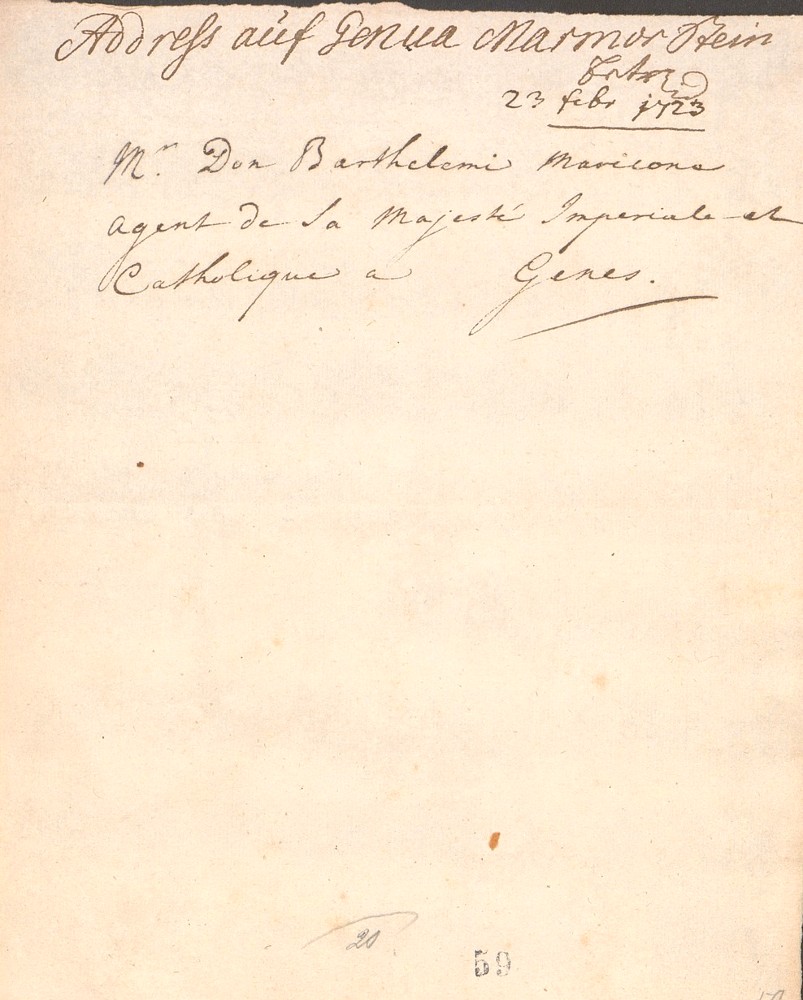 Address aüf Genua Marmor Stein
23 febr 1723
Mr. Don Barthelemi Maricone
agent de Sa Majesté Imperiale et
Catholique a Genes.
20
59